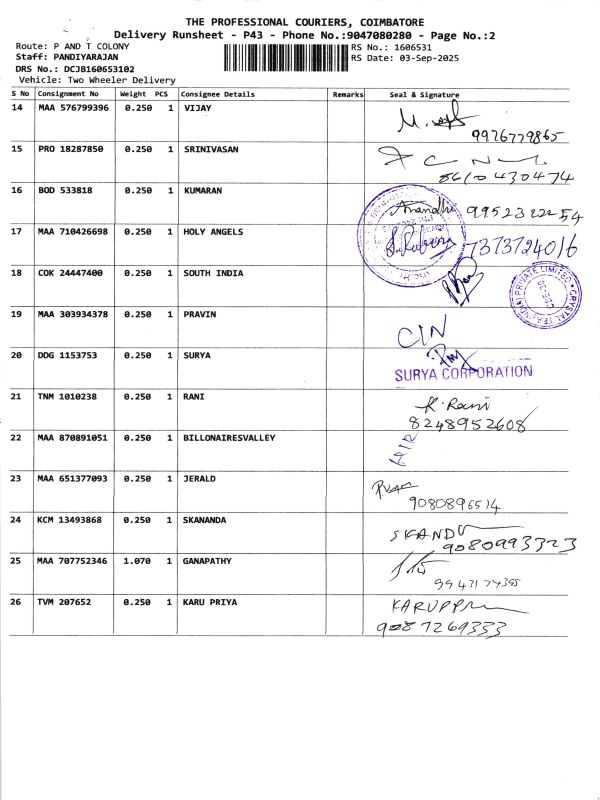 THE PROFESSIONAL COURIERS, COIMBATORE
Delivery Runsheet - P43 - Phone No.:9047080280 - Page No.:2
Route: P AND T COLONY RS No.: 1606531
Staff: PANDIYARAJAN RS Date: 03-Sep-2025
DRS No.: DCJB160653102
Vehicle: Two Wheeler Delivery
S No Consignment No Weight PCS Consignee Details Remarks Seal & Signature
14 MAA 576799396 0.250 1 VIJAY
9976779865
15 PRO 18287850 0.250 1 SRINIVASAN
8610430474
16 BOD 533818 0.250 1 KUMARAN Anandhi
17 MAA 710426698 0.250 1 HOLY ANGELS
7373724016
18 COK 24447400 0.250 1 SOUTH INDIA
PRIVATE LIMITED
19 MAA 303934378 0.250 1 PRAVIN
20 DDG 1153753 0.250 1 SURYA
SURYA CORPORATION
21 TNM 1010238 0.250 1 RANI K. Rani
8248952608
22 MAA 870891051 0.250 1 BILLONAIRESVALLEY
23 MAA 651377093 0.250 1 JERALD
9080896514
24 KCM 13493868 0.250 1 SKANANDA
9080993323
25 MAA 707752346 1.070 1 GANAPATHY
26 TVM 207652 0.250 1 KARU PRIYA
9087269333